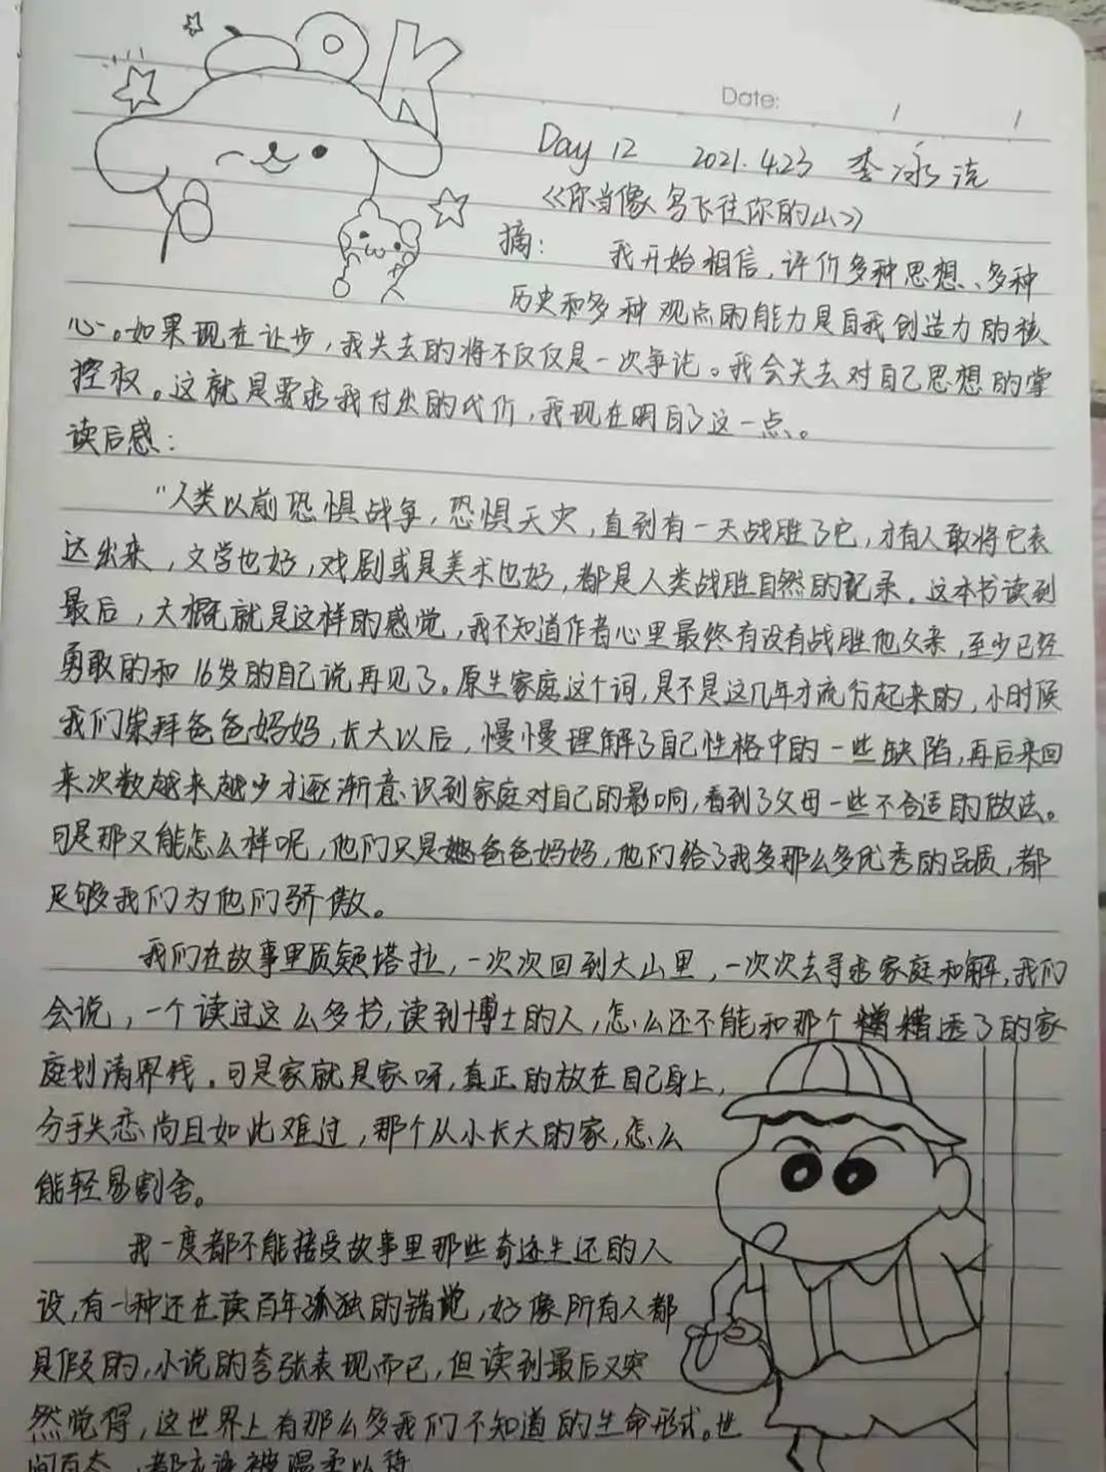 OK
Date: / /
Day 12 2021.4.23 李冰洁
《你当像鸟飞往你的山》
摘： 我开始相信，评价多种思想、多种
历史和多种观点的能力是自我创造力的核
心。如果现在让步，我失去的将不仅仅是一次争论。我会失去对自己思想的掌
控权。这就是要求我付出的代价，我现在明白了这一点。
读后感：
"人类以前恐惧战争，恐惧天灾，直到有一天战胜了它，才有人敢将它表
达出来，文学也好，戏剧或是美术也好，都是人类战胜自然的记录。这本书读到
最后，大概就是这样的感觉，我不知道作者心里最终有没有战胜他父亲，至少已经
勇敢的和16岁的自己说再见了。原生家庭这个词，是不是这几年才流行起来的，小时候
我们崇拜爸爸妈妈，长大以后，慢慢理解了自己性格中的一些缺陷，再后来回
来次数越来越少才逐渐意识到家庭对自己的影响，看到了父母一些不合适的做法。
可是那又能怎么样呢，他们只是爸爸妈妈，他们给了我多那么多优秀的品质，都
足够我们为他们骄傲。
我们在故事里质疑塔拉，一次次回到大山里，一次次去寻求家庭和解，我们
会说，一个读过这么多书，读到博士的人，怎么还不能和那个糟透了的家
庭划清界线。可是家就是家呀，真正的放在自己身上，
分手失恋尚且如此难过，那个从小长大的家，怎么
能轻易割舍。
我一度都不能接受故事里那些奇迹生还的人
设，有一种还在读百年孤独的错觉，好像所有人都
是假的，小说的夸张表现而已，但读到最后又突
然觉得，这世界上有那么多我们不知道的生命形式。世
间百态，都应该被温柔以待